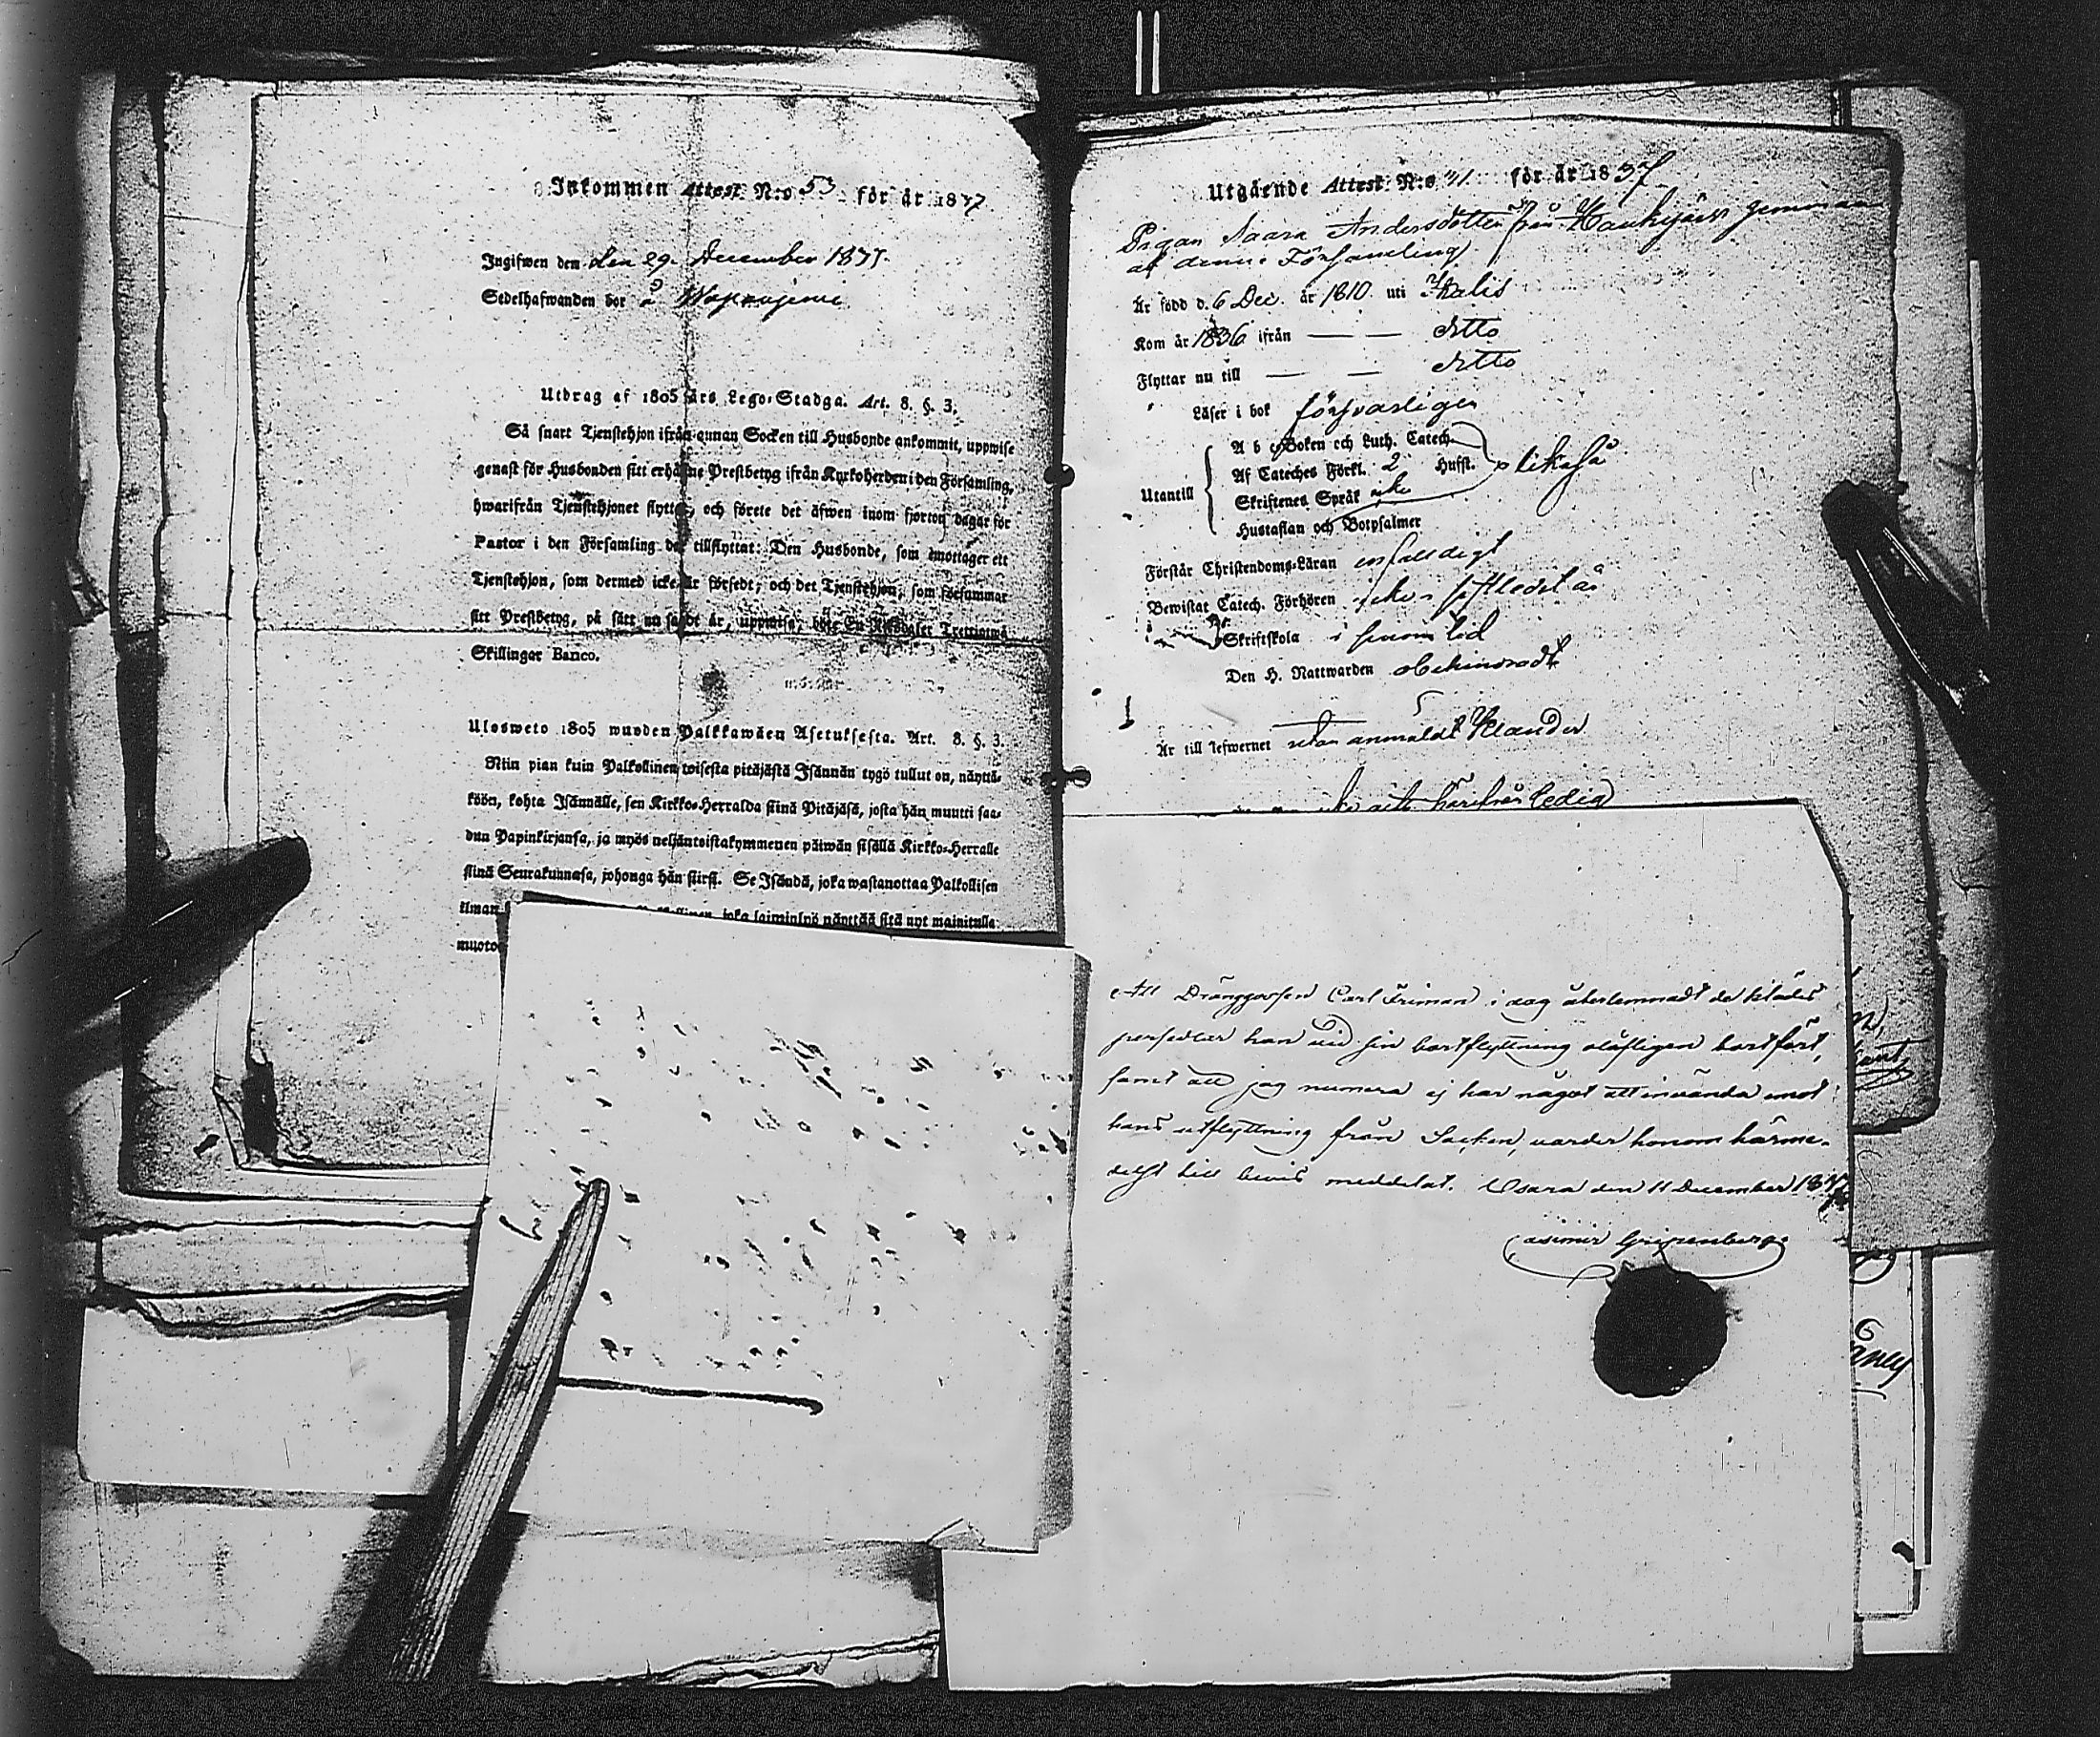 Inkommen Attest N:o 53 för år 1837
Ingifwen den den 29. December 1837.
Sedelhafwanden bor å
Utdrag af 1805 års Lego-Stadga. Art. 8. §. 3.
Så snart Tjenstehjon ifrån annan Socken till Husbonde ankommit, uppwise
genast för Husbonden sitt erhållne Prestbetyg ifrån Kyrkoherden i den Församling,
hwarifrån Tjenstehjonet flyttat, och förete det äfwen inom fjorton dagar för
Pastor i den Församling det tillflyttat: Den Husbonde, som emottager ett
Tjenstehjon, som dermed icke är försedt, och det Tjenstehjon, som försummar
sitt Prestbetyg, på sätt nu sagdt är, uppwisa, böte En Riksdaler Trettiotwå
Skillingar Banco.
Ulosweto 1805 wuoden Palkkawäen Asetuksesta. Art. 8. §. 3.
Niin pian kuin Palkollinen toisesta pitäjästä Isännän tygö tullut on, näyttä-
köön, kohta Isännälle, sen Kirkko-Herralda siinä Pitäjäsä, josta hän muutti saa-
dun Papinkirjansa, ja myös neljäntoistakymmenen päiwän sisällä Kirkko-Herralle
siinä Seurakunnasa, johonga hän siirsi. Se Isändä, joka wastanottaa Palkollisen
ilman
joka laiminlyö näyttää sitä nyt mainitulla
muoto
Utgående Attest N:o 41 för år 1837
Pigan Saara Andersdotter från Haukijärvi
af denna Församling
Är född d. 6 Dec. år 1810 uti Ikalis
Kom år 1836 ifrån — — ditto
Flyttar nu till — — ditto
Läser i bok försvarligen
Utantill
A b c Boken och Luth. Catech.
Af Cateches Förkl. 2 Husft. likaså
Skriftenes Språk icke
Hustaflan och Botpsalmer
Förstår Christendoms-Läran enfalldigt
Bewistat Catech. Förhören
Skriftskola i sinom tid
Den H. Nattwarden obehindradt
Är till lefwernet utan anmäldt klander
härifrån ledig
Att Drängen Carl Friman i dag återlemnadt de kläders
persedlar han vid sin bortflyttning olofligen bortfört,
samt att jag numera ej har något att invända emot
hans utflyttning från Socken, varder honom härme-
delst till bevis meddelat. Osara den 11 December 1837
Casimir Gripenberg